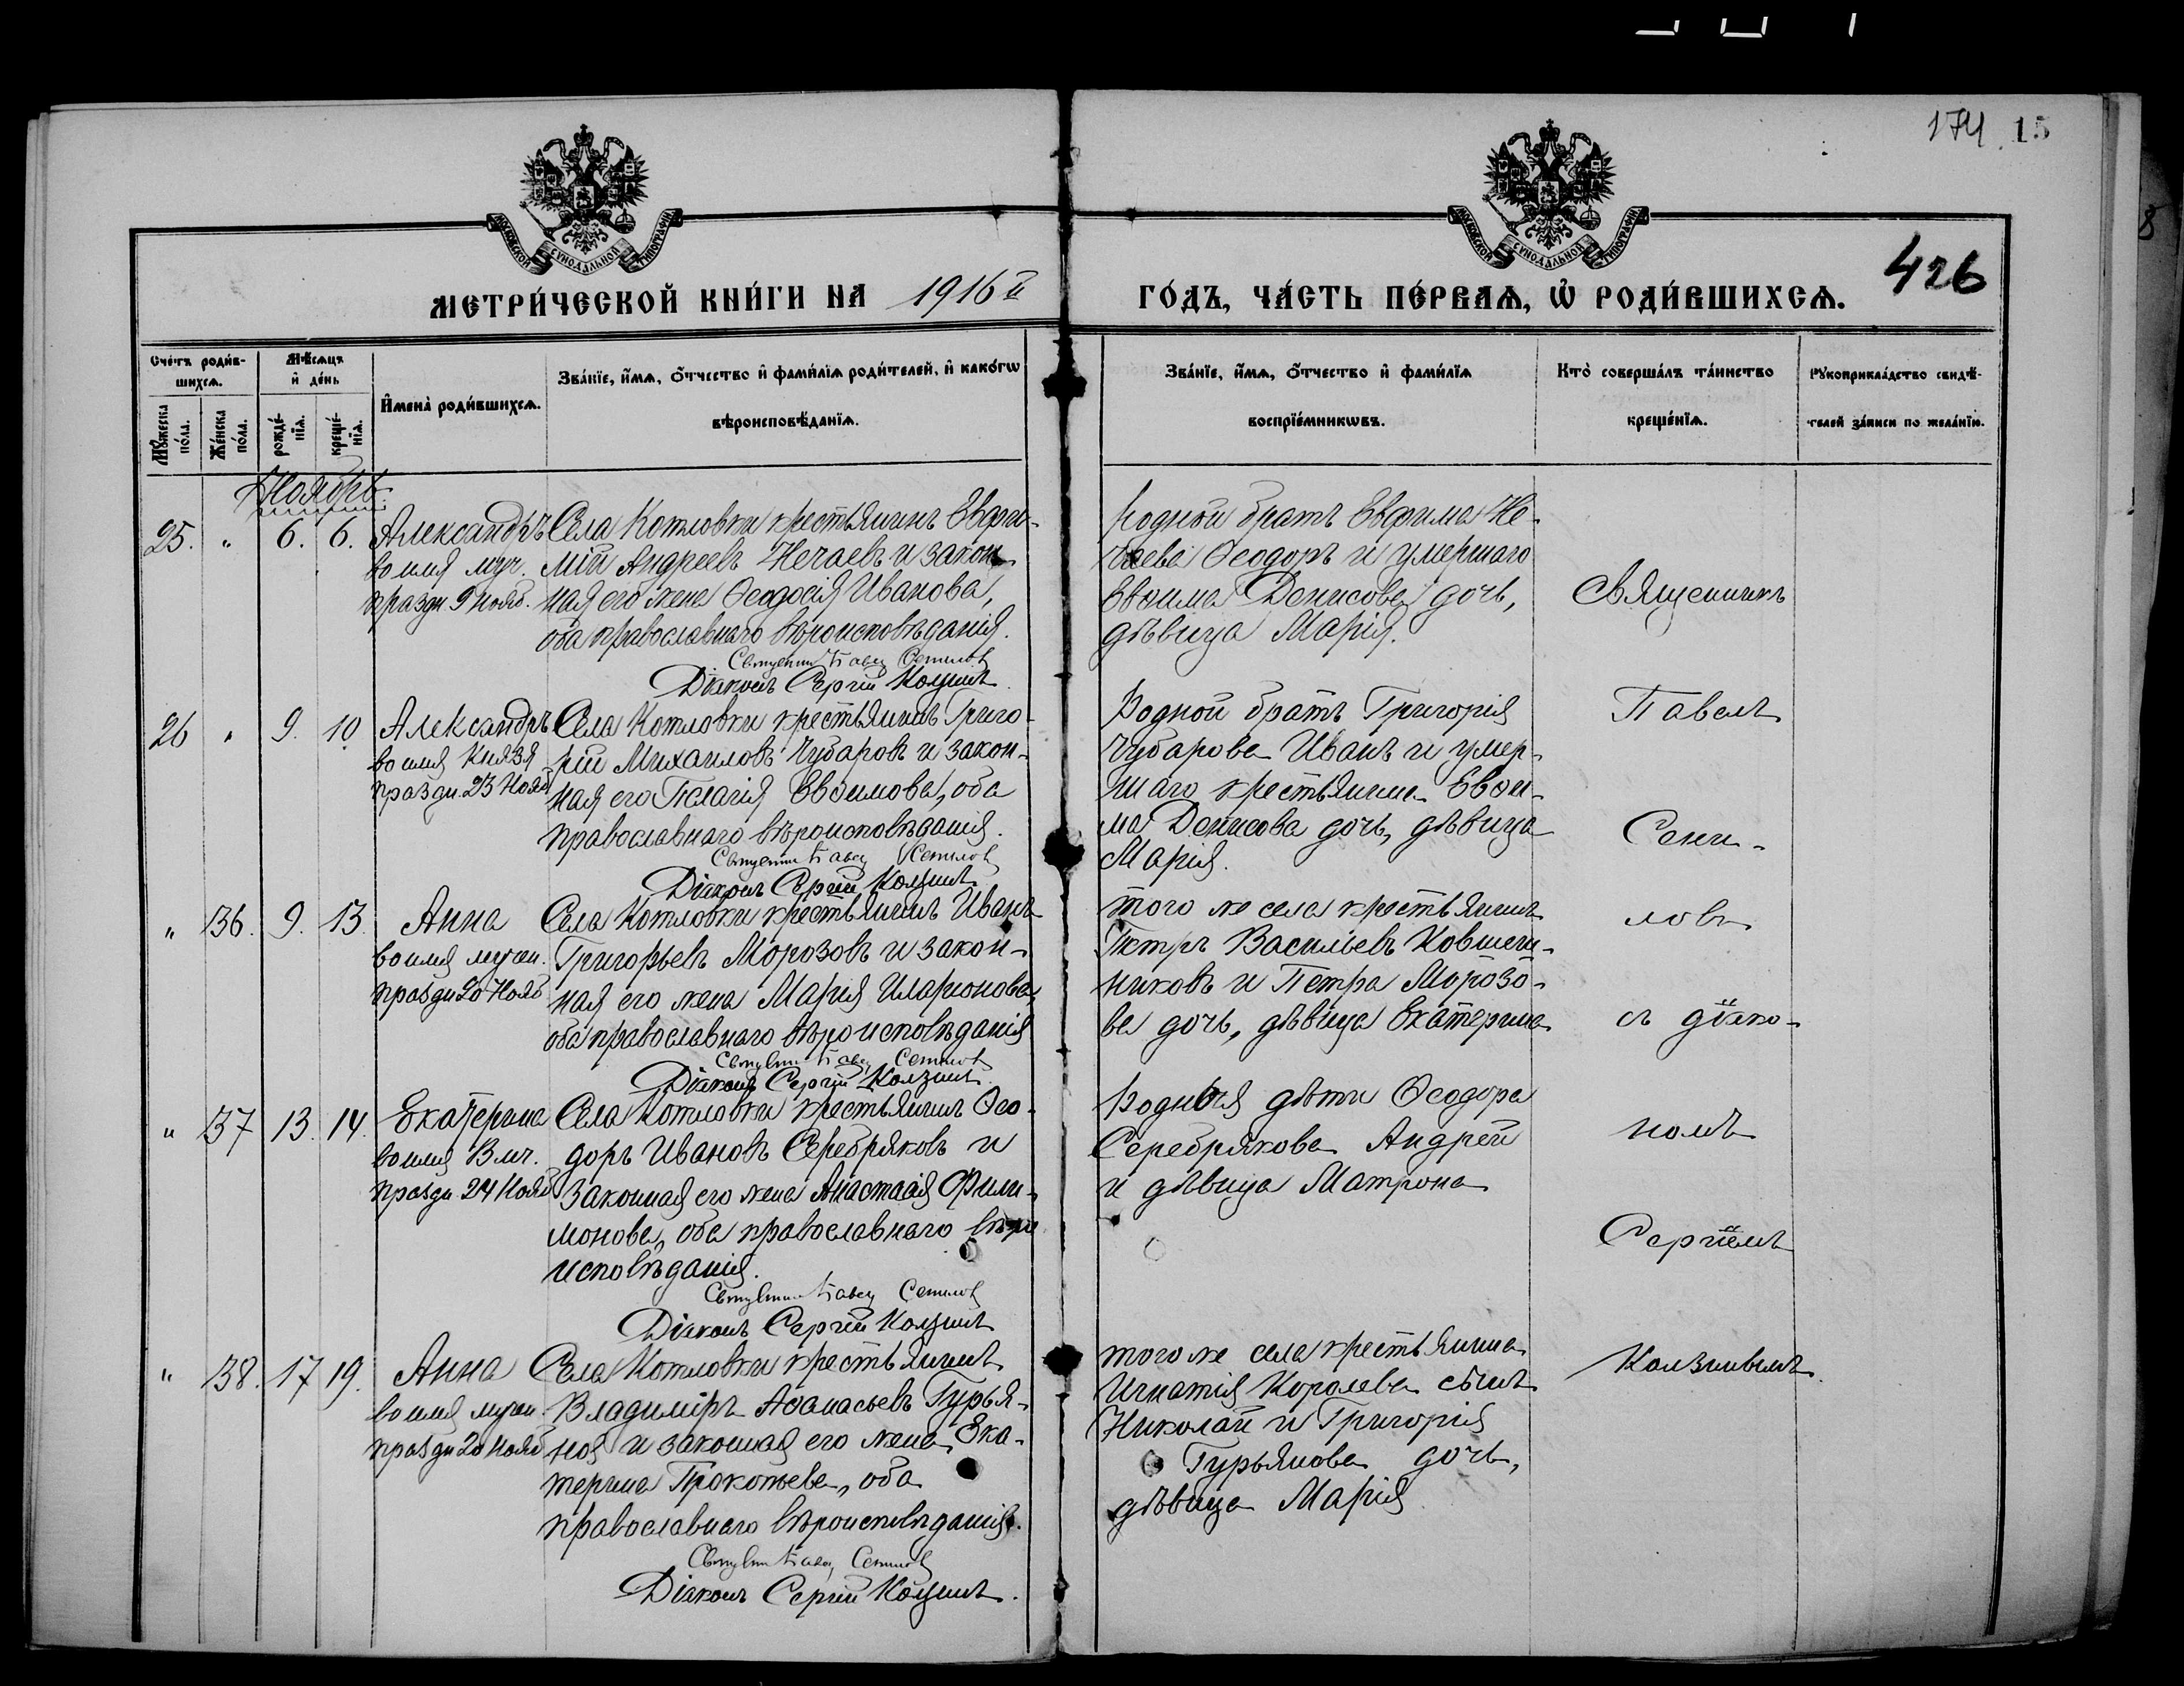 174 15
426
МОСКОВСКОЙ СУНОДАЛЬНОЙ ТИПОГРАФІИ
МОСКОВСКОЙ СУНОДАЛЬНОЙ ТИПОГРАФІИ
МЕТРИ́ЧЕСКОЙ КНИ́ГИ НА 1916й ГО́ДЪ, ЧА́СТЬ ПЕ́РВАѦ, Ѡ РОДИ́ВШИХСѦ.
Сче́тъ роди́в-
шихсѧ.
Мꙋ́жеска по́ла.
Же́нска по́ла.
Мѣ́сѧцъ
и де́нь
рожде́-
нїѧ.
креще́-
нїѧ.
Имена̀ роди́вшихсѧ.
Зва́нїе, и́мѧ, ѻ́тчество и фами́лїѧ роди́телей, и како́гѡ
вѣроисповѣ́данїѧ.
Зва́нїе, и́мѧ, ѻ́тчество и фами́лїѧ
воспрїе́мникѡвъ.
Кто̀ соверша́лъ та́инство
креще́нїѧ.
Рꙋкоприкла́дство свидѣ́-
телей за́писи по жела́нїю.
Ноябрь
25. " 6. 6. Александръ
во имя муч.
праздн. 9 нояб.
Села Котловки крестьянинъ Евфи-
мій Андреевъ Нечаевъ и закон-
ная его жена Ѳеодосія Иванова,
оба православнаго вѣроисповѣданія.
Павел
Діаконъ Сергій Колзинъ.
Родной братъ Евфима Не-
чаева Ѳеодоръ и умершаго
Евѳима Денисова дочь,
дѣвица Марія.
26 " 9. 10. Александръ
во имя Князя
праздн. 23 Нояб
Села Котловки крестьянинъ Григо-
рій Михаиловъ Чубаровъ и закон-
ная его Пелагія Евѳимова, оба
православнаго вѣроисповѣданія.
Павел
Діаконъ Сергій Колзинъ
Родной братъ Григорія
Чубарова Иванъ и умер-
шаго крестьянина Евѳи-
ма Денисова дочь, дѣвица
Марія.
" 36. 9. 13. Анна
во имя мучен.
праздн 20 Нояб
Села Котловки крестьянинъ Иванъ
Григорьевъ Морозовъ и закон-
ная его жена Марія Иларіонова
оба православнаго вѣроисповѣданія
Павел
Діаконъ Сергій Колзинъ.
того же села крестьянинъ
Петръ Васильевъ Ковшеч-
никовъ и Петра Морозо-
ва дочь, дѣвица Екатерина
" 37 13. 14. Екатерина
во имя Вмч.
праздн. 24 Нояб
Села Котловки крестьянинъ Ѳео-
доръ Ивановъ Серебряковъ и
законная его жена Анастасія Фили-
монова, оба православнаго вѣро
исповѣданія.
Павел
Діаконъ Сергій Колзинъ
Родныя дѣти Ѳеодора
Серебрякова Андрей
и дѣвица Матрона
" 38. 17 19. Анна
во имя мучен.
праздн 20 нояб
Села Котловки крестьянинъ
Владиміръ Аѳанасьевъ Гурья-
новъ и законная его жена Ека-
терина Прокопьева, оба
православнаго вѣроисповѣданія.
Павел
Діаконъ Сергій Колзинъ.
того же села крестьянина
Игнатія Королева сынъ
Николай и Григорія
Гурьянова дочь,
дѣвица Марія
Священникъ
Павелъ
Сени-
ловъ
съ діако-
номъ
Сергіемъ
Колзинымъ.